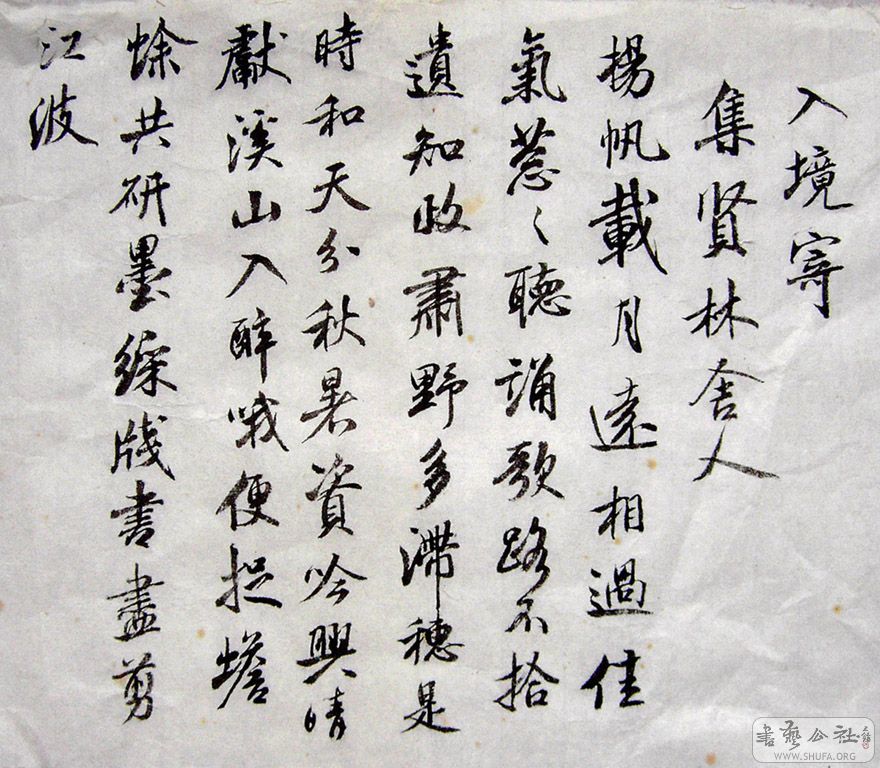 入境寄
集贤林舍人
揚帆載月遠相過佳
氣蔥〻聽誦歌路不拾
遺知政肅野多滯穗是
時和天分秋暑資吟興晴
獻溪山入醉哦便捉蟾
蜍共研墨綵牋書盡剪
江波
書藝公社
WWW.SHUFA.ORG